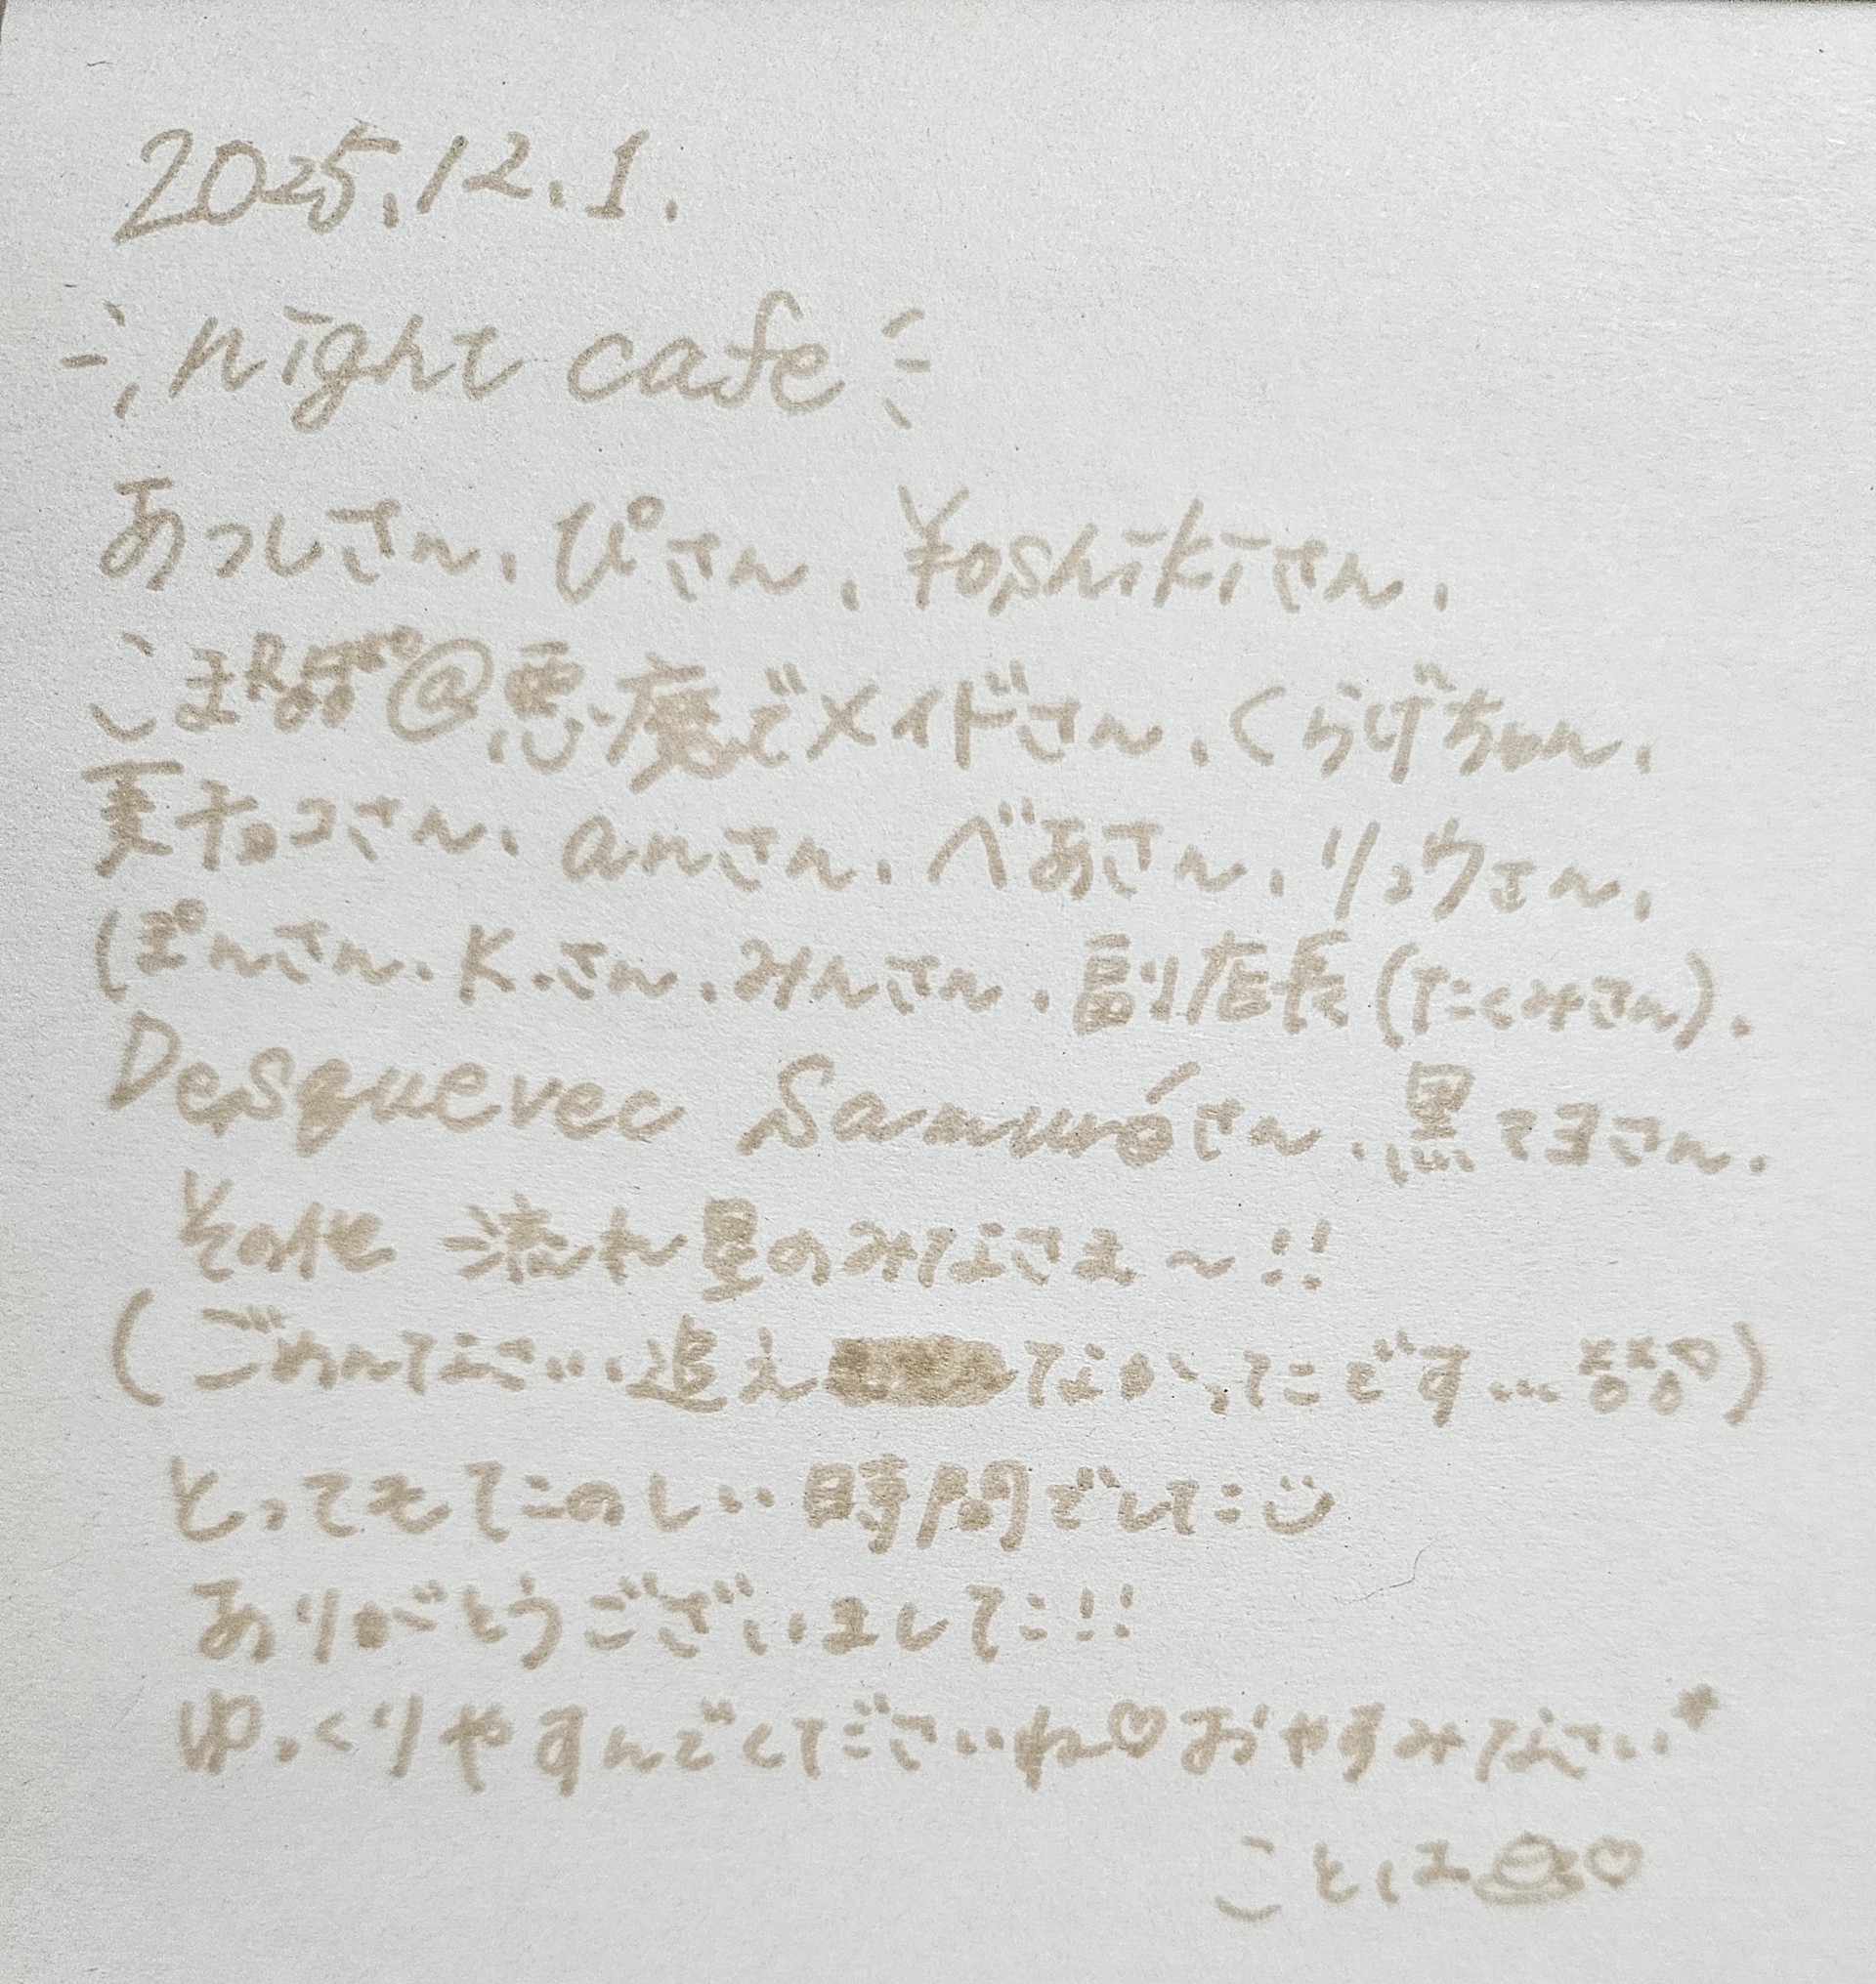 2025.12.1.
night cafe
あつしさん、ぴさん、¥oshikiさん、
こま @悪魔でメイドさん、くらげちゃん、
チョコさん、anさん、べあさん、リュウさん、
(ぽんさん、K.さん、みんさん、副店長(たくみさん)、
Desquevec Samuróさん、黒てヨさん、
その他 流れ星のみなさま〜!!
(ごめんなさい、追え なかったです...)
とってもたのしい時間でした
ありがとうございました!!
ゆっくりやすんでくださいね♡おやすみなさい
ことは♡